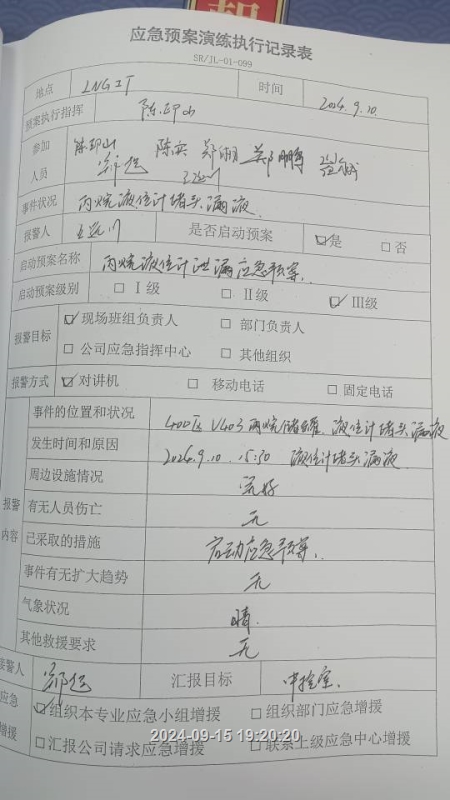 应急预案演练执行记录表
SR/JL-01-099
地点 LNG工厂 时间 2024.9.10
预案执行指挥 陈印山
参加人员 陈印山 陈实 郑湖 郑鹏 郑恒
事件状况 丙烷液位计堵头漏液
报警人 是否启动预案 ☑是 □否
启动预案名称 丙烷液位计泄漏应急预案
启动预案级别 □I级 □II级 ☑III级
报警目标 ☑现场班组负责人 □部门负责人
□公司应急指挥中心 □其他组织
报警方式 ☑对讲机 □移动电话 □固定电话
报警内容
事件的位置和状况 400区V403丙烷储罐液位计堵头漏液
发生时间和原因 2024.9.10 15:30 液位计堵头漏液
周边设施情况 完好
有无人员伤亡 无
已采取的措施 启动应急预案
事件有无扩大趋势 无
气象状况 晴
其他救援要求 无
接警人 郑恒 汇报目标 中控室
应急增援 ☑组织本专业应急小组增援 □组织部门应急增援
□汇报公司请求应急增援 □联系上级应急中心增援
2024-09-15 19:20:20